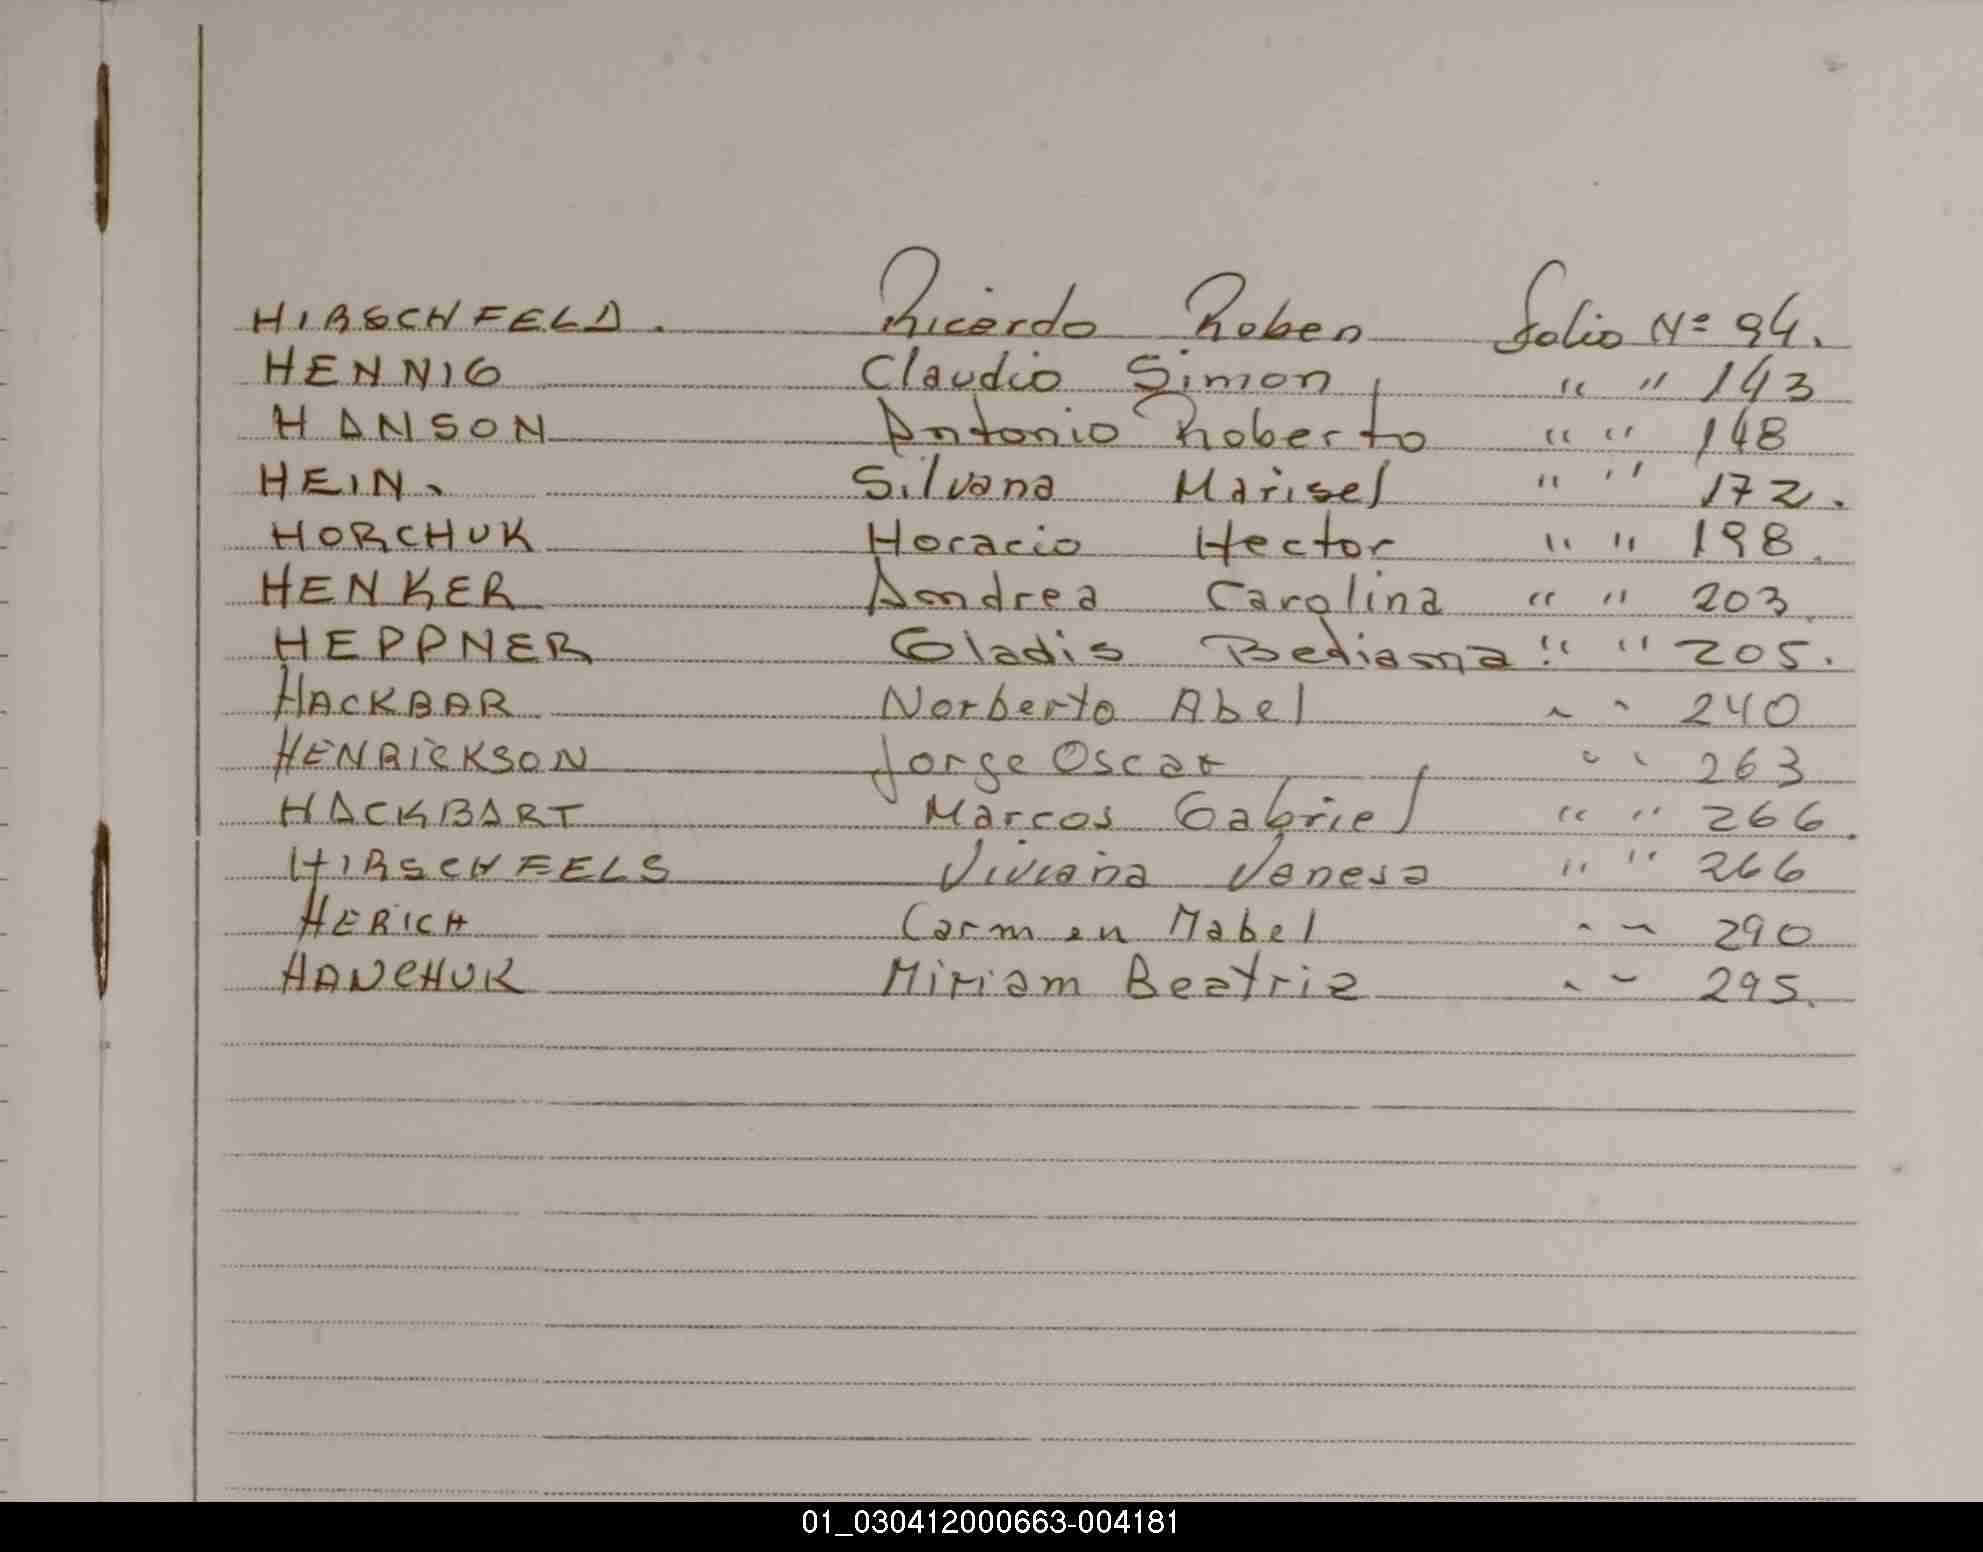 HIRSCHFELD. Ricardo Ruben folio Nº 94.
HENNIG Claudio Simon " " 143
HANSON Antonio Roberto " " 148
HEIN. Silvana Marisel " " 172.
HORCHUK Horacio Hector " " 198.
HENKER Andrea Carolina " " 203
HEPPNER Gladis Bediama " " 205.
HACKBAR Norberto Abel " " 240
HENRICKSON Jorge Oscar " " 263
HACKBART Marcos Gabriel " " 266.
HIRSCHFELS Viviana Vanesa " " 266
HERICH Carmen Mabel " " 290
HANCHUK Miriam Beatriz " " 295.
01_030412000663-004181